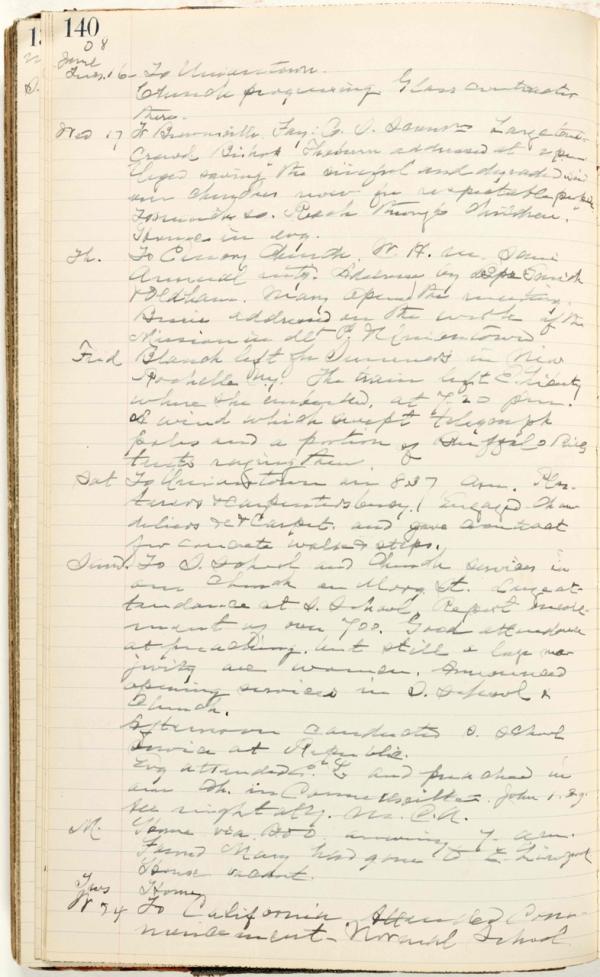 140
08
June
Tues. 16 - To Uniontown.
Church progressing Glass contractor
there.
Wed 17 To Brownsville, Fay. Co. S. S. Large
crowd Bishop Thoburn addressed at open
saving the sinful and degraded
our churches now for respectable people
Reach through children."
Home in evg.
Th. To Emory Church, W. H. M. Semi
Annual mtg. Address by Smith
& Oldham. Many opened the meeting.
Bessie addressed on the work of the
Mission in Uniontown
Frid Blanch left for Summers in New
Rochelle NY. The train left E. Liberty
where she embarked, at 7 20 pm.
A wind which swept telegraph
poles and a portion of
tents raging then.
Sat To Uniontown in 8.37 am. Plas-
terers & carpenters busy. Engaged chan
deliers & Carpet. and gave contract
for concrete walk & steps.
Sund. To S. School and Church services in
our church on Morg. St. Large at-
tendance at S. School, Report enroll-
ment as over 700. Good attendance
at preaching, but still a large ma-
jority are women. Announced
opening services in S. School &
Church.
Afternoon conducted S. School
service at Republic.
Evg attended E. L. and preached in
our Ch. in Connellsville. John 1.29.
M. Home via B & O arriving 7 am.
Found Mary had gone to E. Liverpool
House vacant.
Tues Home
W 24 To California Attended Com-
mencement - Normal School